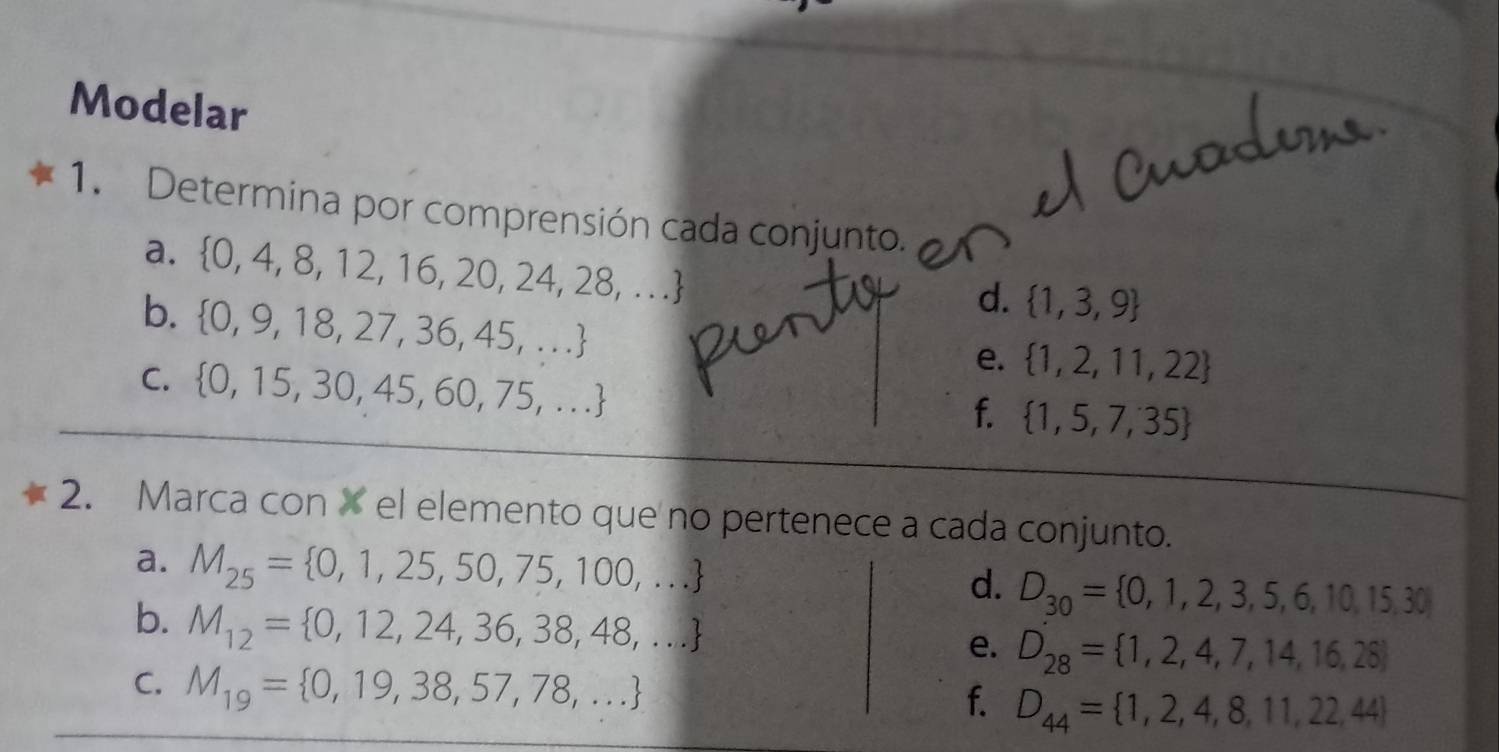 Modelar
1. Determina por comprensión cada conjunto.
en el cuaderno.
a. {0, 4, 8, 12, 16, 20, 24, 28, ...}
b. {0, 9, 18, 27, 36, 45, ...}
c. {0, 15, 30, 45, 60, 75, ...}
d. {1, 3, 9}
e. {1, 2, 11, 22}
f. {1, 5, 7, 35}
2. Marca con X el elemento que no pertenece a cada conjunto.
a. M₂₅ = {0, 1, 25, 50, 75, 100, ...}
b. M₁₂ = {0, 12, 24, 36, 38, 48, ...}
c. M₁₉ = {0, 19, 38, 57, 78, ...}
d. D₃₀ = {0, 1, 2, 3, 5, 6, 10, 15, 30}
e. D₂₈ = {1, 2, 4, 7, 14, 16, 28}
f. D₄₄ = {1, 2, 4, 8, 11, 22, 44}